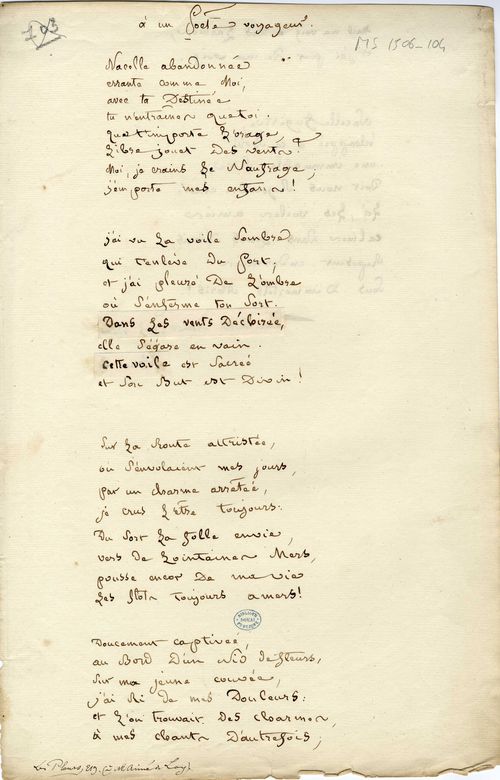 103
à un Poète voyageur.
MS 1506-104
Nacelle abandonnée
errante comme Moi,
avec ta Destinée
tu n'entraînes que toi.
que t'importe L'orage,
Libre jouet Des vents ?
Moi, je crains Le Naufrage ;
j'emporte mes enfans !
j'ai vu La voile Sombre
qui t'enlève Du Port ;
et j'ai pleuré De L'ombre
où S'enferme ton Sort.
Dans Les vents Déchirée,
elle S'égare en vain.
Cette voile est Sacrée
et Son But est Divin !
Sur La Route attristée,
où S'envolaient mes jours,
par un charme arrêtée,
je crus L'être toujours.
Du Sort La folle envie,
vers De Lointaines Mers,
pousse encor De ma vie
Les flots toujours amers !
Doucement captivée,
au Bord D'un Nid de fleurs,
Sur ma jeune couvée,
j'ai Ri de mes Douleurs :
et L'on trouvait Des charmes
à mes chants D'autrefois ;
Les Pleurs, 219. (à M. Aimé de Loy)